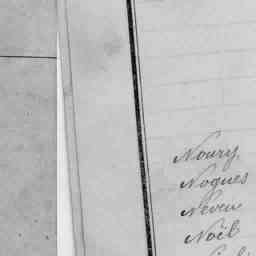 Noury.
Nogues
Neveu
Noël